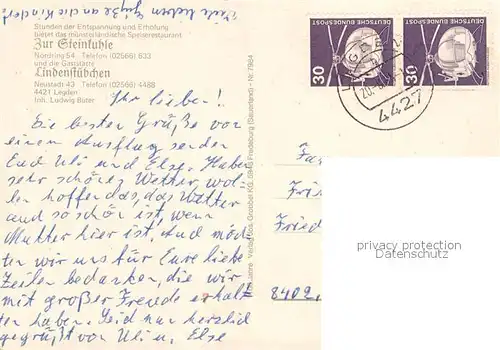 Viele lieben Grüße an die Kinder!
Stunden der Entspannung und Erholung
bietet das münsterländische Speiserestaurant
Zur Steinkuhle
Nordring 54 Telefon (02566) 633
und die Gaststätte
Lindenstübchen
Neustadt 43 Telefon (02566) 4488
4421 Legden
Inh. Ludwig Büter
Ihr lieben!
Die besten Grüße von
einem Ausflug senden
Euch Uli und Else. Haben
sehr schönes Wetter, wol-
len hoffen das, das Wetter
auch so schön ist, wenn
Mutter hier ist. Auch möch-
ten wir uns für Eure liebe
Zeilen bedanken, die wir
mit großer Freude erhalt-
ten haben. Seid nun herzlich
gegrüßt von Uli u. Else
Verlag Foto-Goebbel KG, 5948 Fredeburg (Sauerland) - Nr. 7984
DEUTSCHE BUNDESPOST
30
DEUTSCHE BUNDESPOST
30
4427
Fa
Fri
Fried
8402
privacy protection
Datenschutz